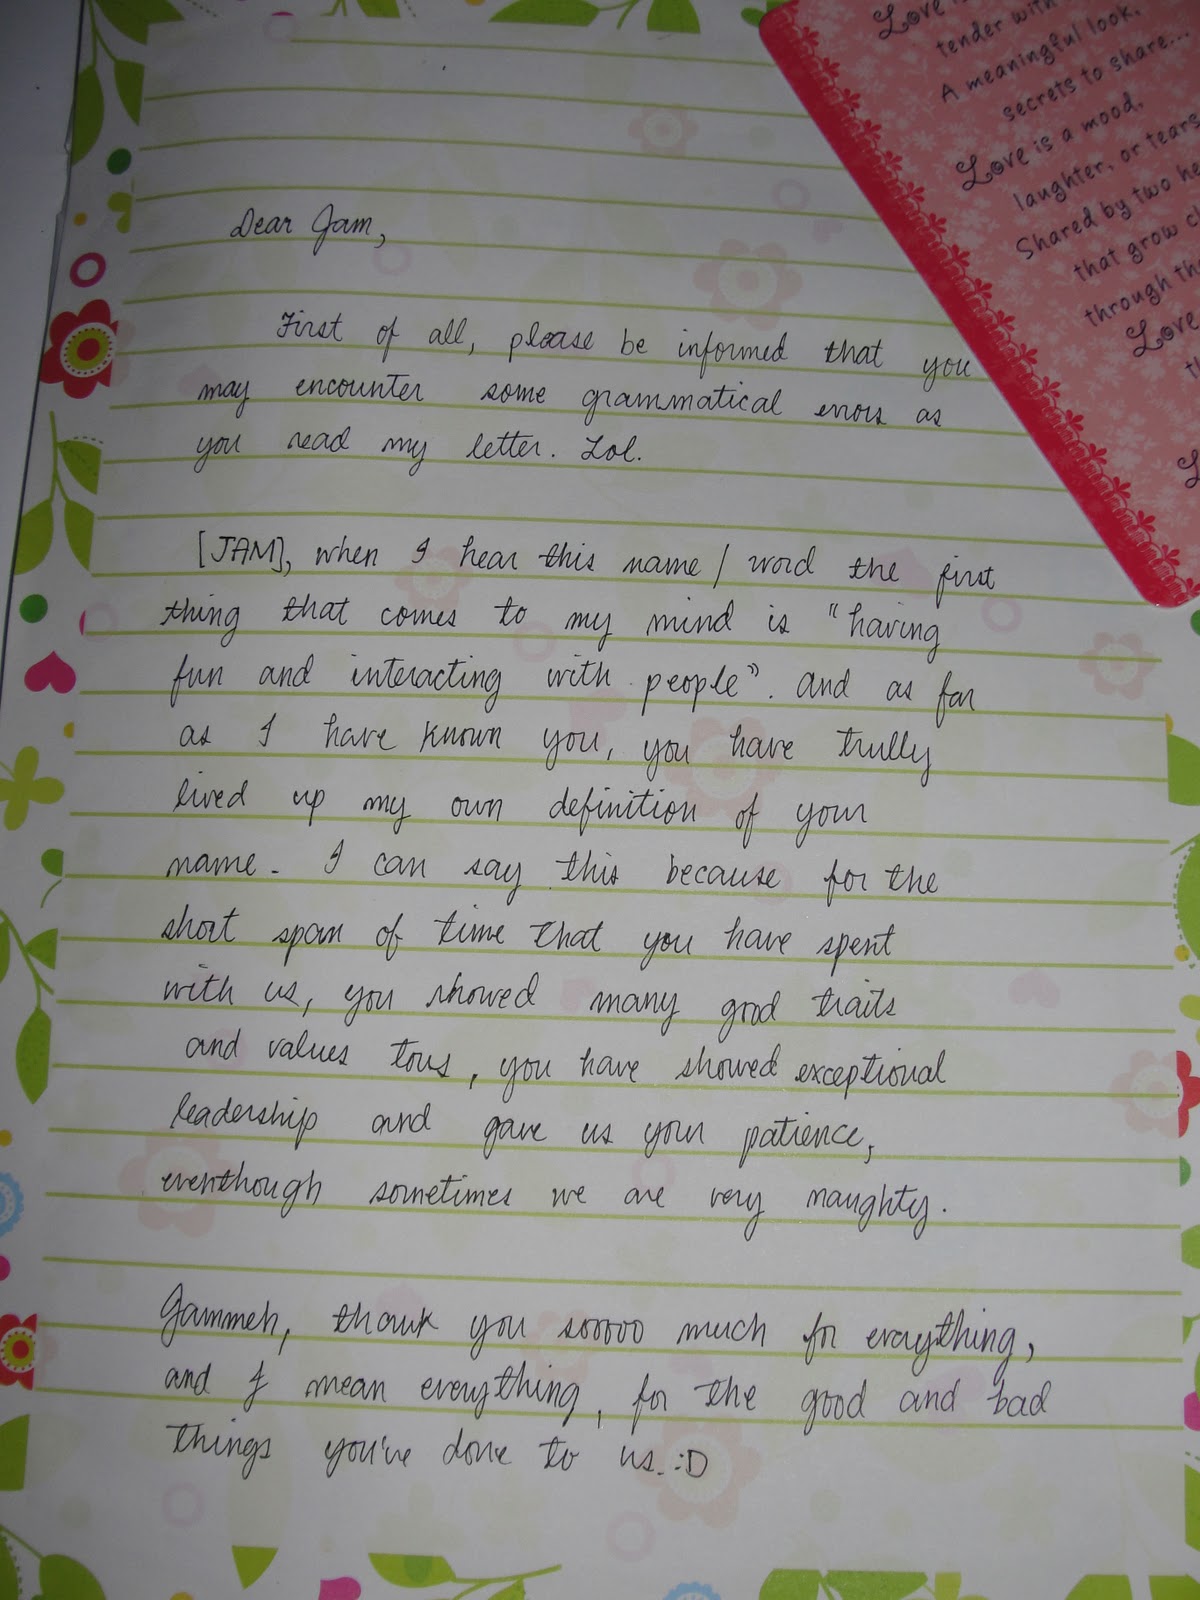 Dear Jam,
First of all, please be informed that you
may encounter some grammatical errors as
you read my letter. Lol.
[JAM], when I hear this name / word the first
thing that comes to my mind is "having
fun and interacting with people". and as far
as I have known you, you have trully
lived up my own definition of your
name. I can say this because for the
short span of time that you have spent
with us, you showed many good traits
and values tous, you have showed exceptional
leadership and gave us your patience,
eventhough sometimes we are very naughty.
Jammeh, thank you sooooo much for everything,
and I mean everything, for the good and bad
things you've done to us. :D
Love
tender with
A meaningful look,
secrets to share...
Love is a mood,
laughter, or tears
Shared by two
that grow
through
Love